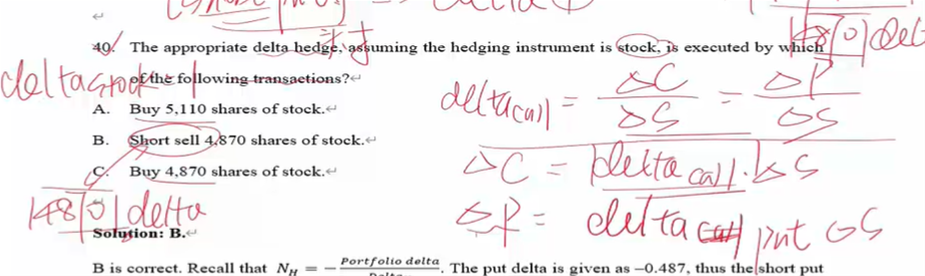 40. The appropriate delta hedge, assuming the hedging instrument is stock, is executed by which
of the following transactions?
delta stock 1
A. Buy 5,110 shares of stock.
B. Short sell 4,870 shares of stock.
C. Buy 4,870 shares of stock.
4870 delta
Solution: B.
B is correct. Recall that N_H = − Portfolio delta . The put delta is given as −0.487, thus the short put
4870 del
delta call = ΔC/ΔS = ΔP/ΔS
ΔC = delta call · ΔS
ΔP = delta put ΔS